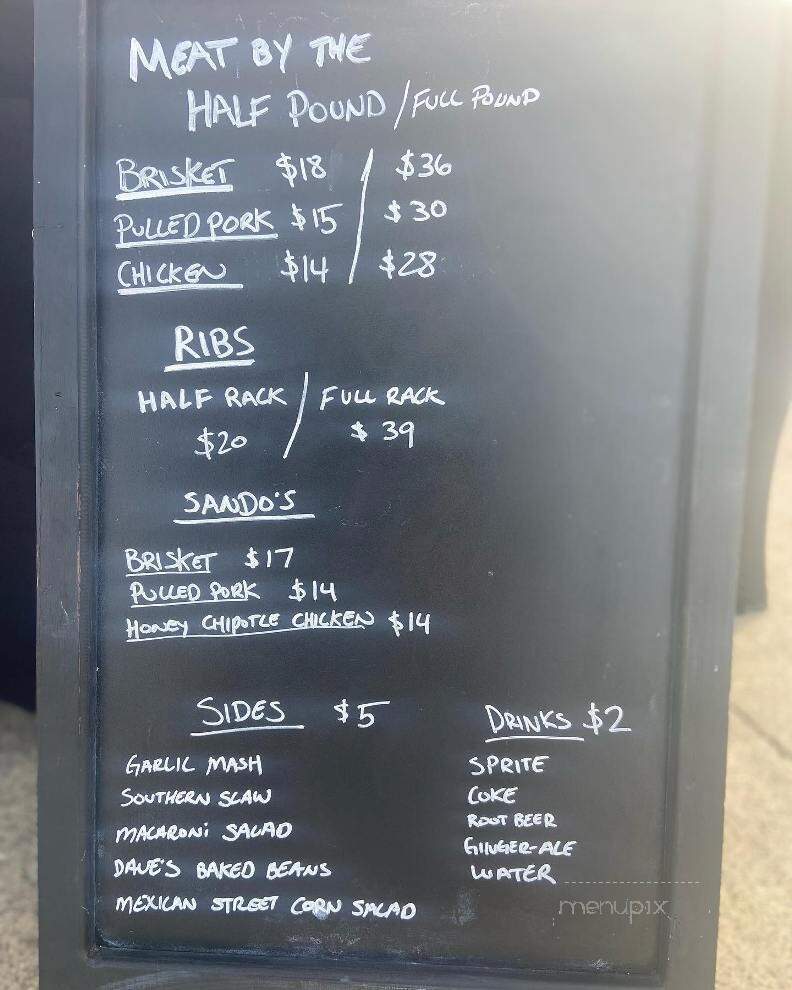 MEAT BY THE
HALF POUND / FULL POUND
BRISKET $18 / $36
PULLED PORK $15 / $30
CHICKEN $14 / $28
RIBS
HALF RACK / FULL RACK
$20 / $39
SANDO'S
BRISKET $17
PULLED PORK $14
HONEY CHIPOTLE CHICKEN $14
SIDES $5
GARLIC MASH
SOUTHERN SLAW
MACARONi SALAD
DAVE'S BAKED BEANS
MEXICAN STREET CORN SALAD
DRINKS $2
SPRITE
COKE
ROOT BEER
GINGER-ALE
WATER
menupix